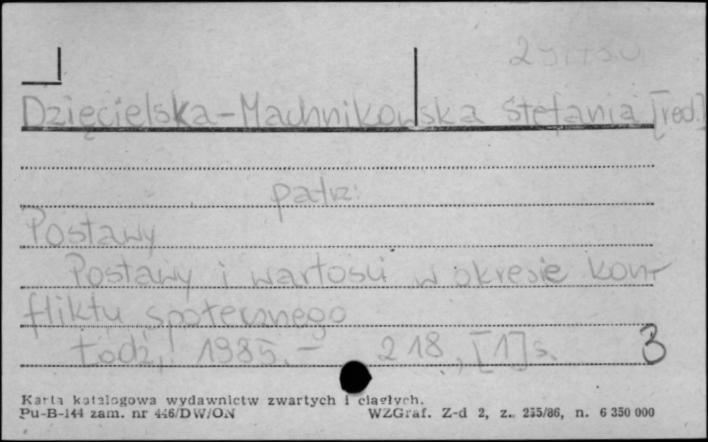 Dzięcielska-Machnikowska Stefania [red.]
patrz:
Postawy
Postawy i wartości w okresie kon-
fliktu społecznego
Łódź, 1985. - 218, [1] s. 3
Karta katalogowa wydawnictw zwartych i ciągłych.
Pu-B-144 zam. nr 446/DW/ON WZGraf. Z-d 2, z. 235/86, n. 6 350 000